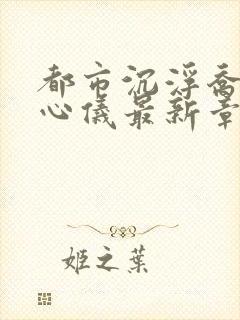 都市沉浮乔
心儀最新章
姬之葉